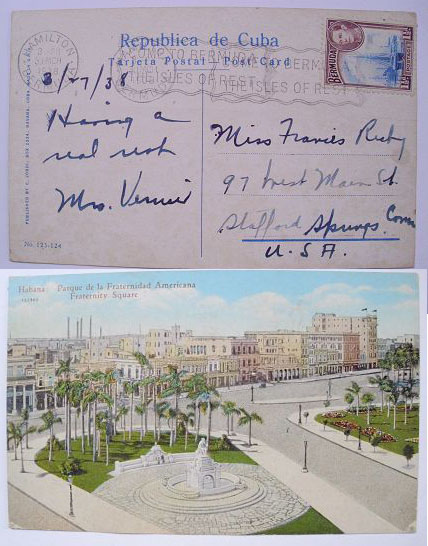 Republica de Cuba
Tarjeta Postal - Post Card
HAMILTON
COME TO BERMUDA
THE ISLES OF REST
THE ISLES OF REST
BERMUDA
3/-7/38
Having a
real rest
Mrs. Vernier
Miss Francis Rieby
97 West Main St.
Stafford Springs, Conn
U.S.A.
No. 123-124
Habana Parque de la Fraternidad Americana
Fraternity Square